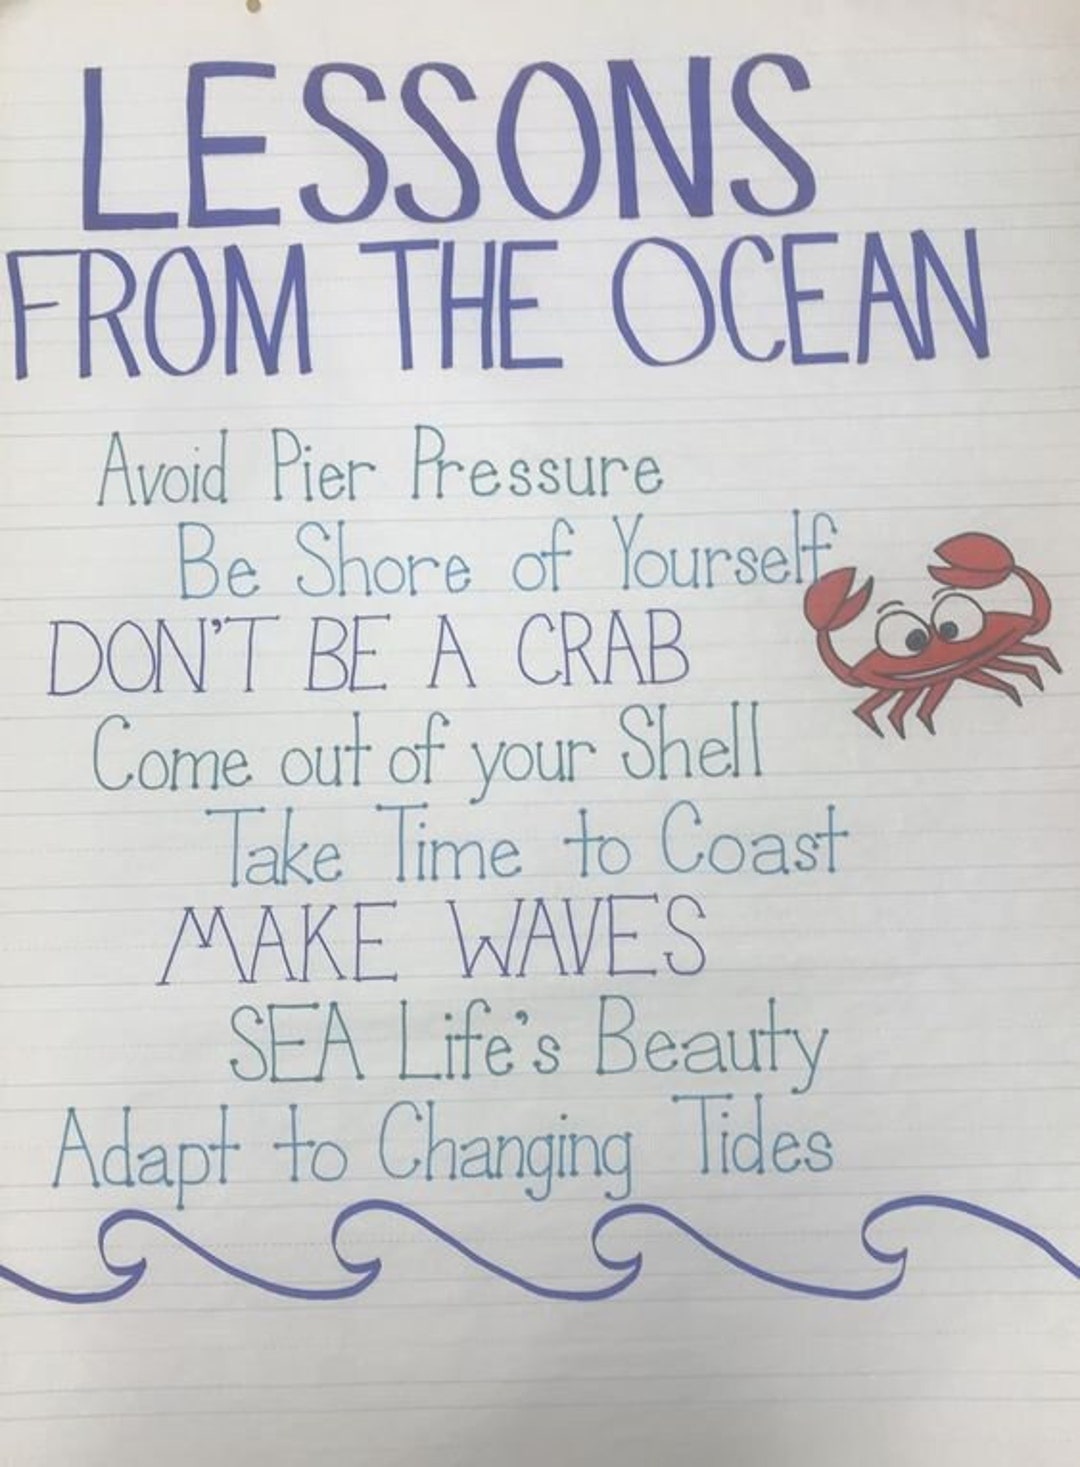 LESSONS
FROM THE OCEAN
Avoid Pier Pressure
Be Shore of Yourself
DON'T BE A CRAB
Come out of your Shell
Take Time to Coast
MAKE WAVES
SEA Life's Beauty
Adapt to Changing Tides